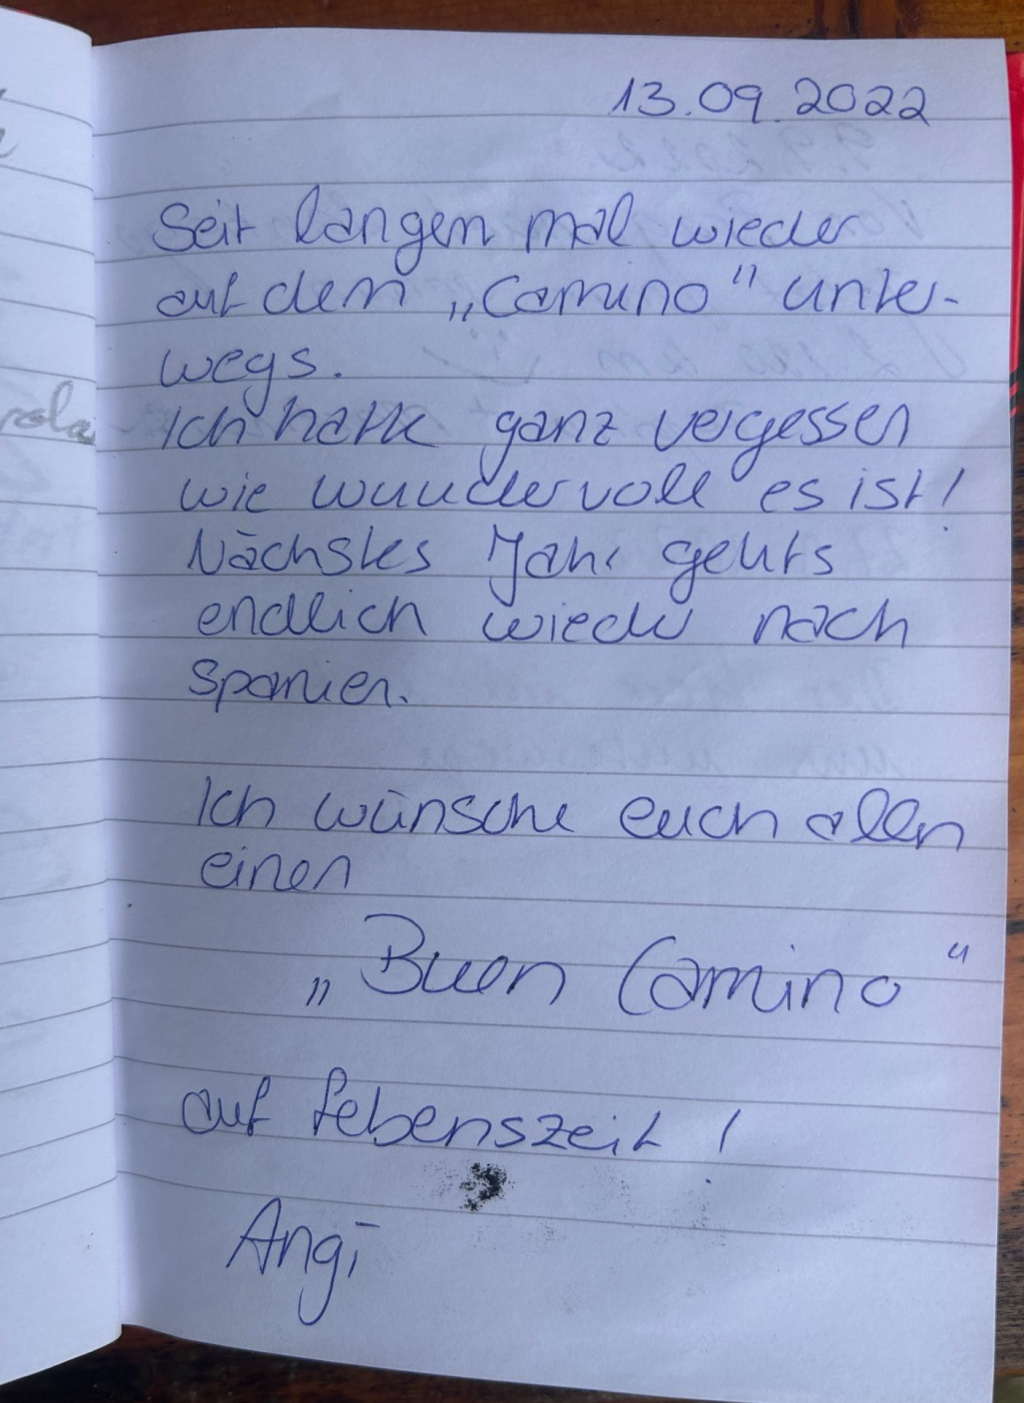 13.09.2022
Seit langen mal wieder
auf dem „Camino" unter-
wegs.
Ich hatte ganz vergessen
wie wundervoll es ist!
Nächstes Jahr gehts
endlich wieder nach
Spanien.
Ich wünsche euch allen
einen
„Buen Camino"
auf Lebenszeit!
Angi